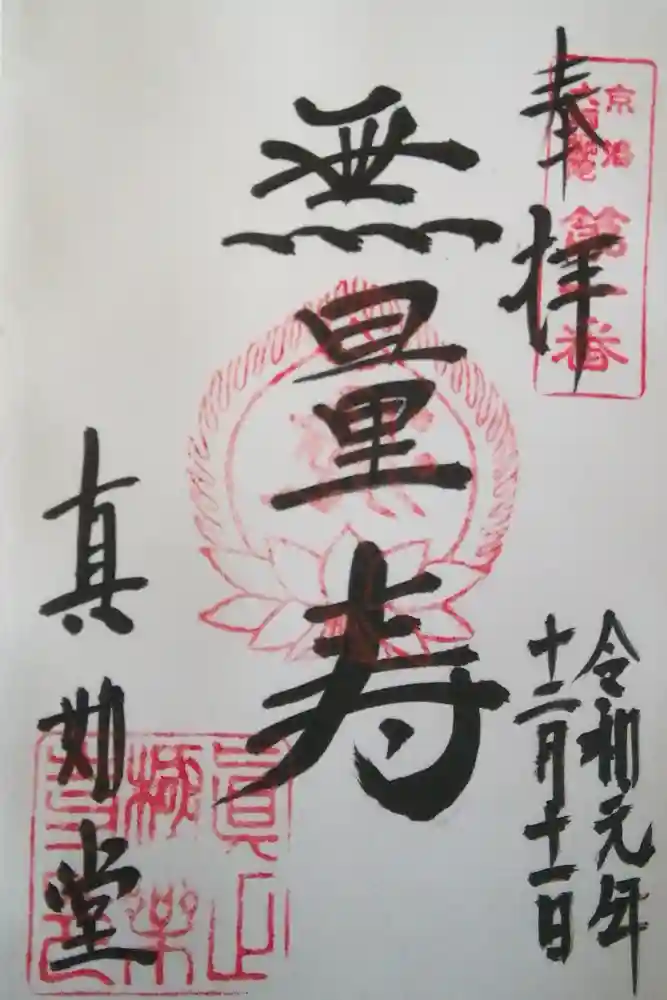 奉拝
京洛
第一番
無量寿
令和元年
十二月十一日
真如堂
眞正
極樂
寺印